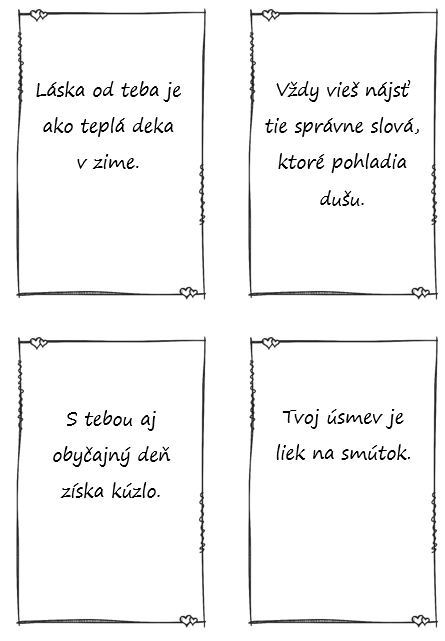 Láska od teba je
ako teplá deka
v zime.
Vždy vieš nájsť
tie správne slová,
ktoré pohladia
dušu.
S tebou aj
obyčajný deň
získa kúzlo.
Tvoj úsmev je
liek na smútok.